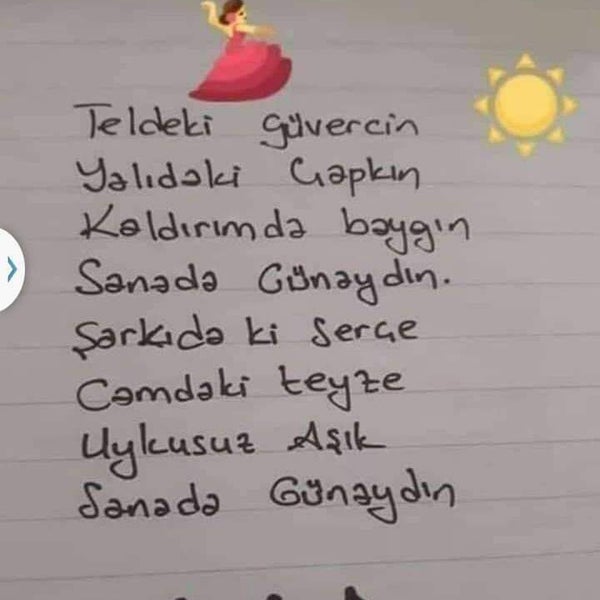 Teldeki güvercin
Yalıdaki Çapkın
Kaldırımda baygın
Sanada Günaydın.
Şarkıda ki Serçe
Camdaki teyze
Uykusuz Aşık
Sanada Günaydın